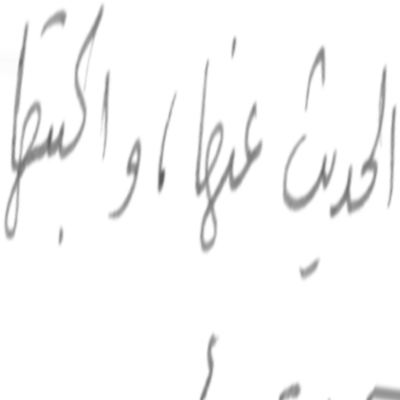 الحديث عنها، واكتبها